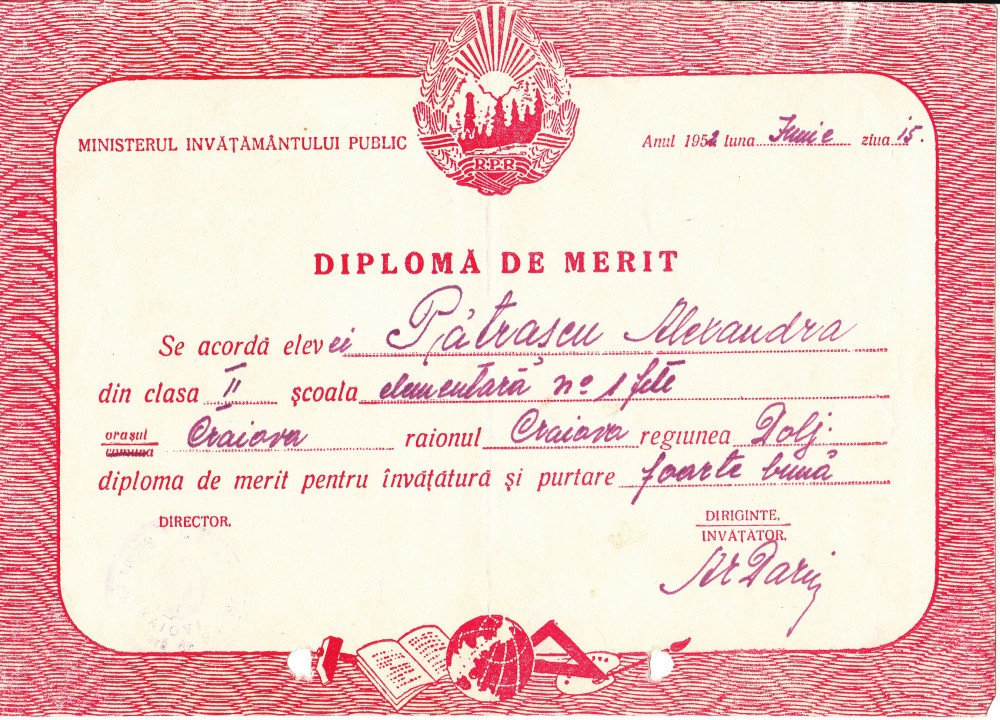 R.P.R
MINISTERUL INVĂȚĂMÂNTULUI PUBLIC
Anul 1952 luna Junie ziua 15.
DIPLOMĂ DE MERIT
Se acordă elevei Pătrașcu Alexandra
din clasa II școala elementară no 1 fete
orașul Craiova raionul Craiova regiunea Dolj.
comuna
diploma de merit pentru învățătură și purtare foarte bună
DIRECTOR.
DIRIGINTE,
INVĂȚĂTOR.